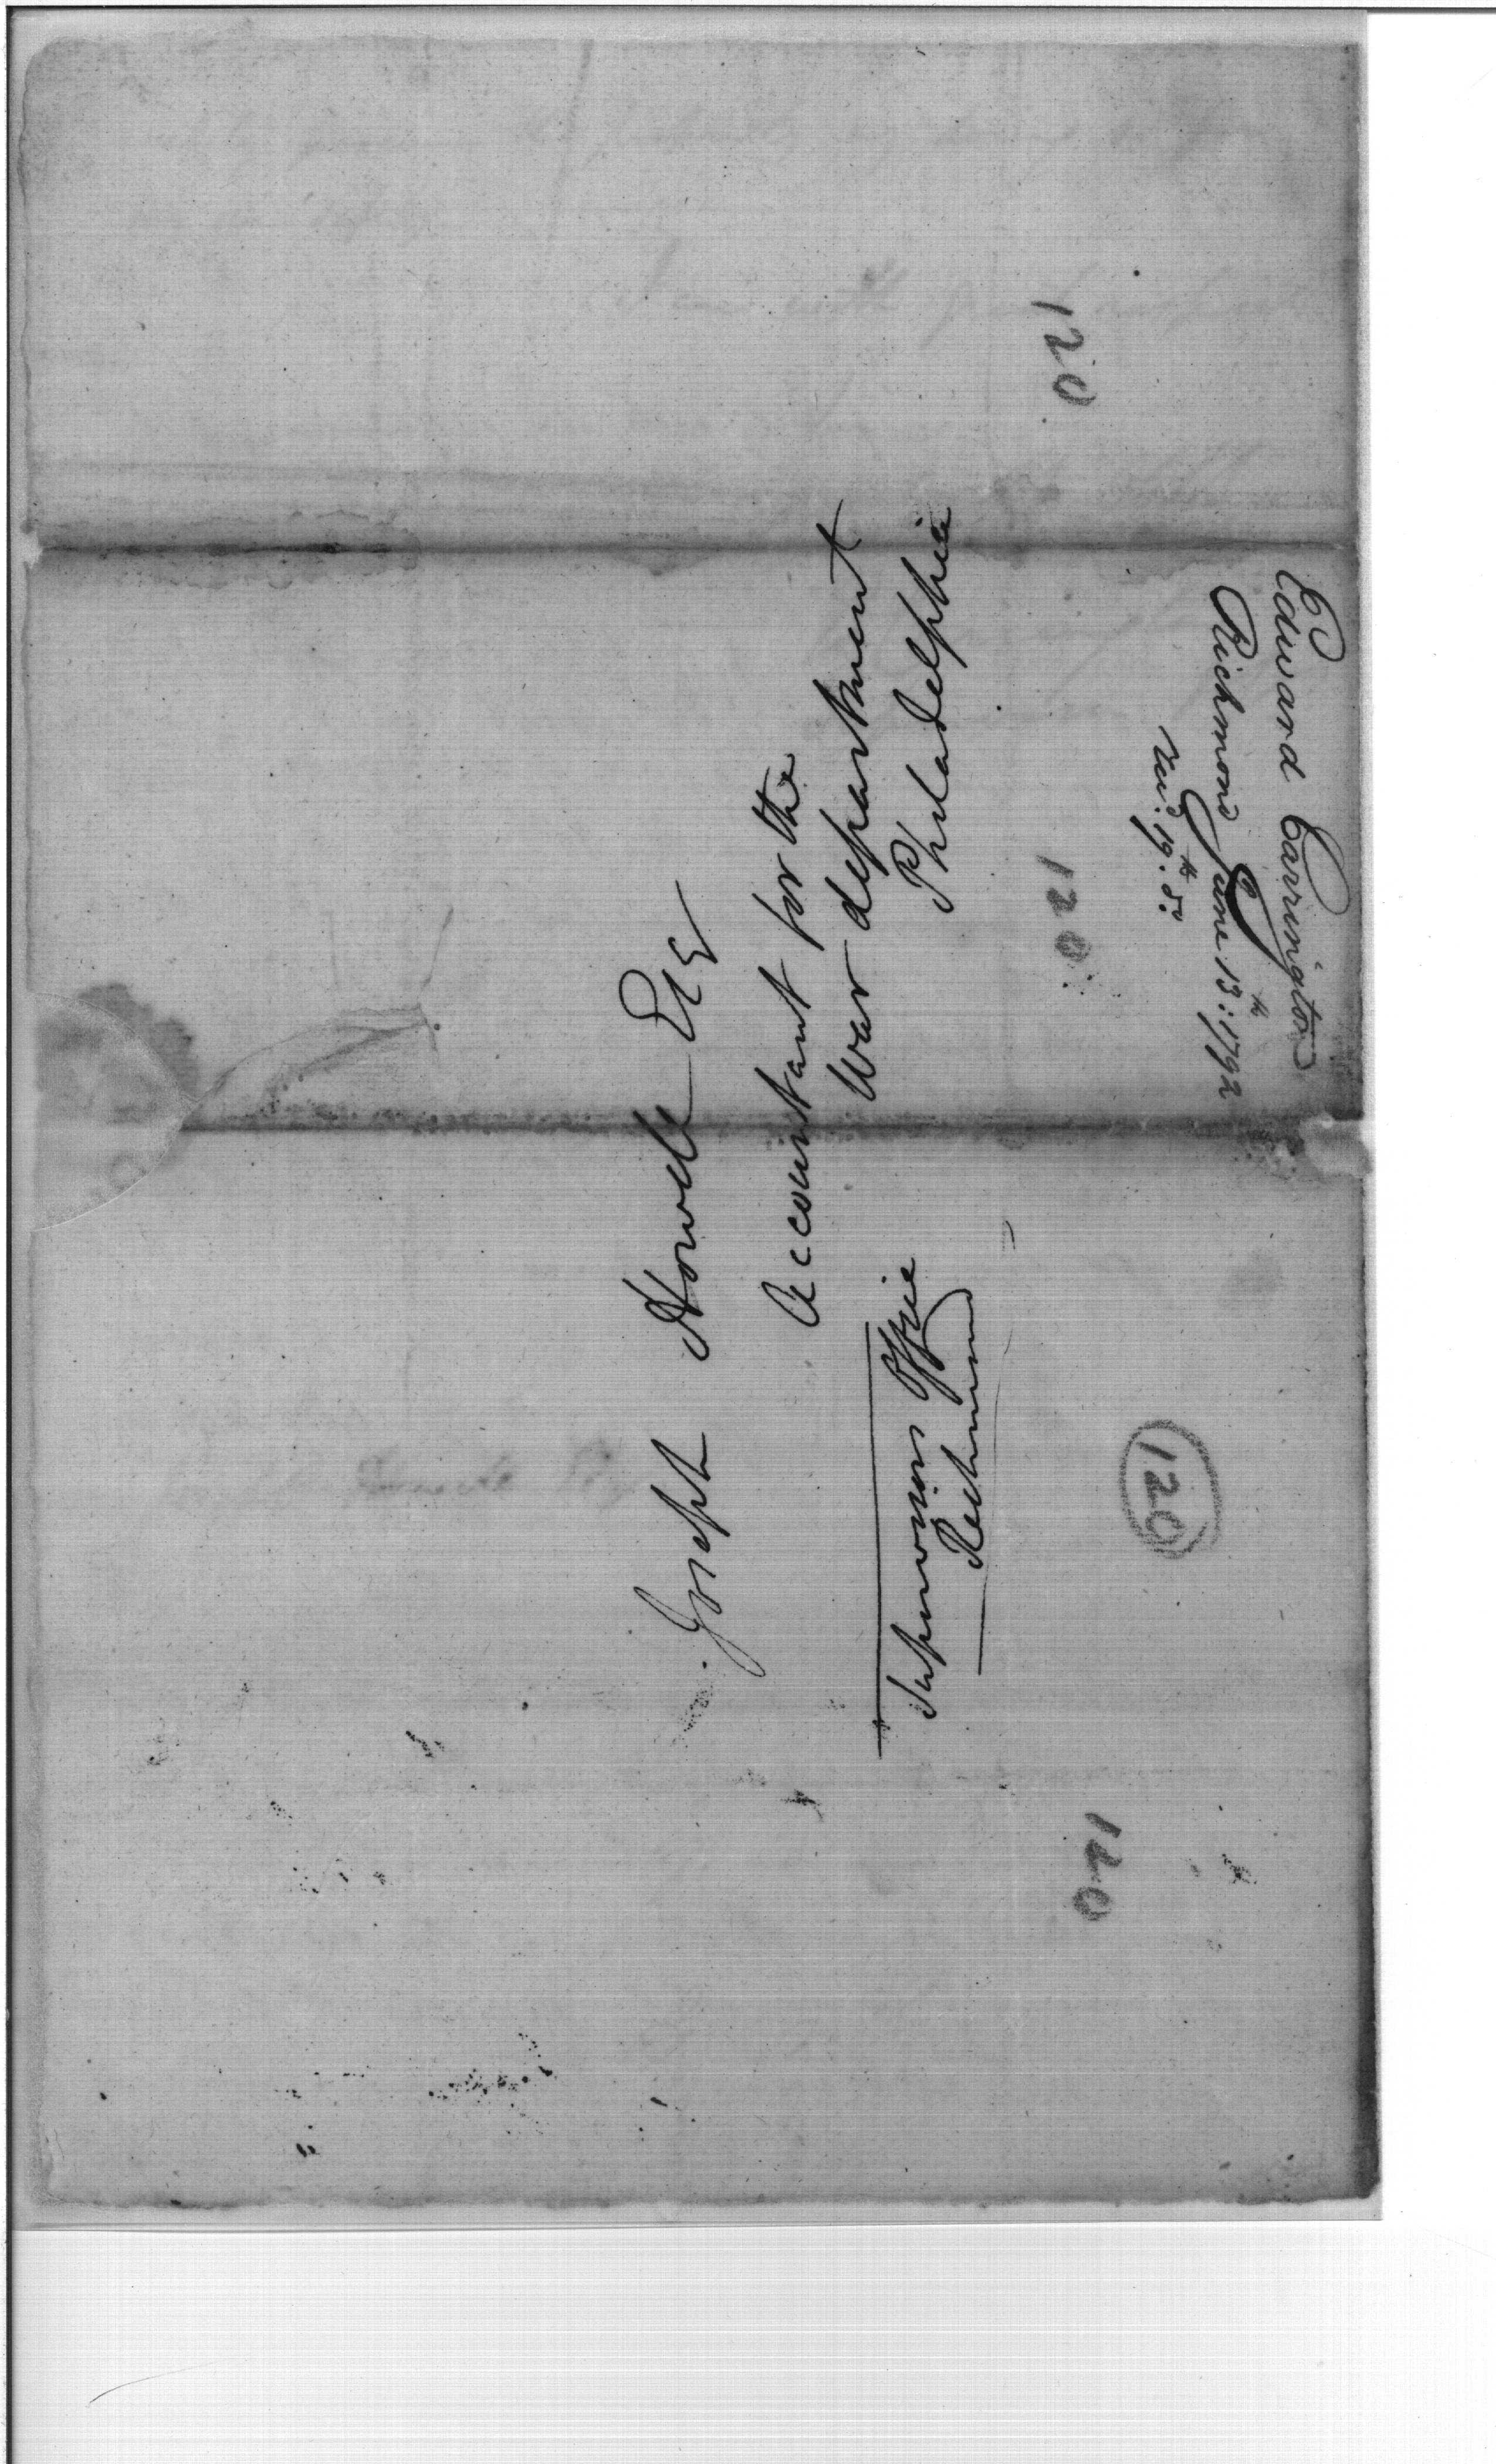 Joseph Howell Esq
Accountant for the
War department
Philadelphia
Supervisors Office
Richmond
Edward Carrington
Richmond June 13th: 1792
Recd. 19th. do.
120
120
120
120